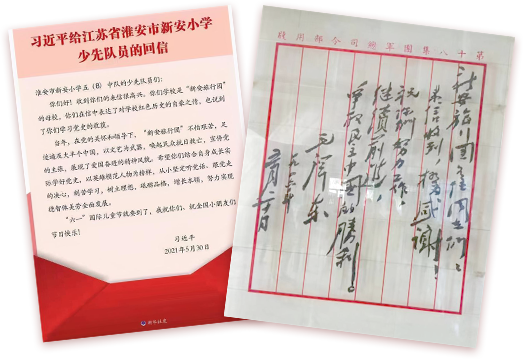 习近平给江苏省淮安市新安小学
少先队员的回信
淮安市新安小学五（8）中队的少先队员们：
你们好！收到你们的来信很高兴。你们学校是“新安旅行团”
的母校，你们在信中表达了对学校红色历史的自豪之情，也说到
了你们学习党史的收获。
当年，在党的关怀和领导下，“新安旅行团”不怕艰苦，足
迹遍及大半个中国，以文艺为武器，唤起民众抗日救亡，宣传党
的主张，展现了爱国奋进的精神风貌。希望你们结合自身成长实
际学好党史，以英雄模范人物为榜样，从小坚定听党话、跟党走
的决心，刻苦学习，树立理想，砥砺品格，增长本领，努力实现
德智体美劳全面发展。
“六一”国际儿童节就要到了，我祝你们、祝全国小朋友们
节日快乐！
习近平
2021年5月30日
新华社发
第十八集團軍總司令部用牋
新安旅行團同志們：
來信收到，極為感謝！
祝你們努力工作，
繼續前進，
爭取民主中國的勝利。
毛澤東